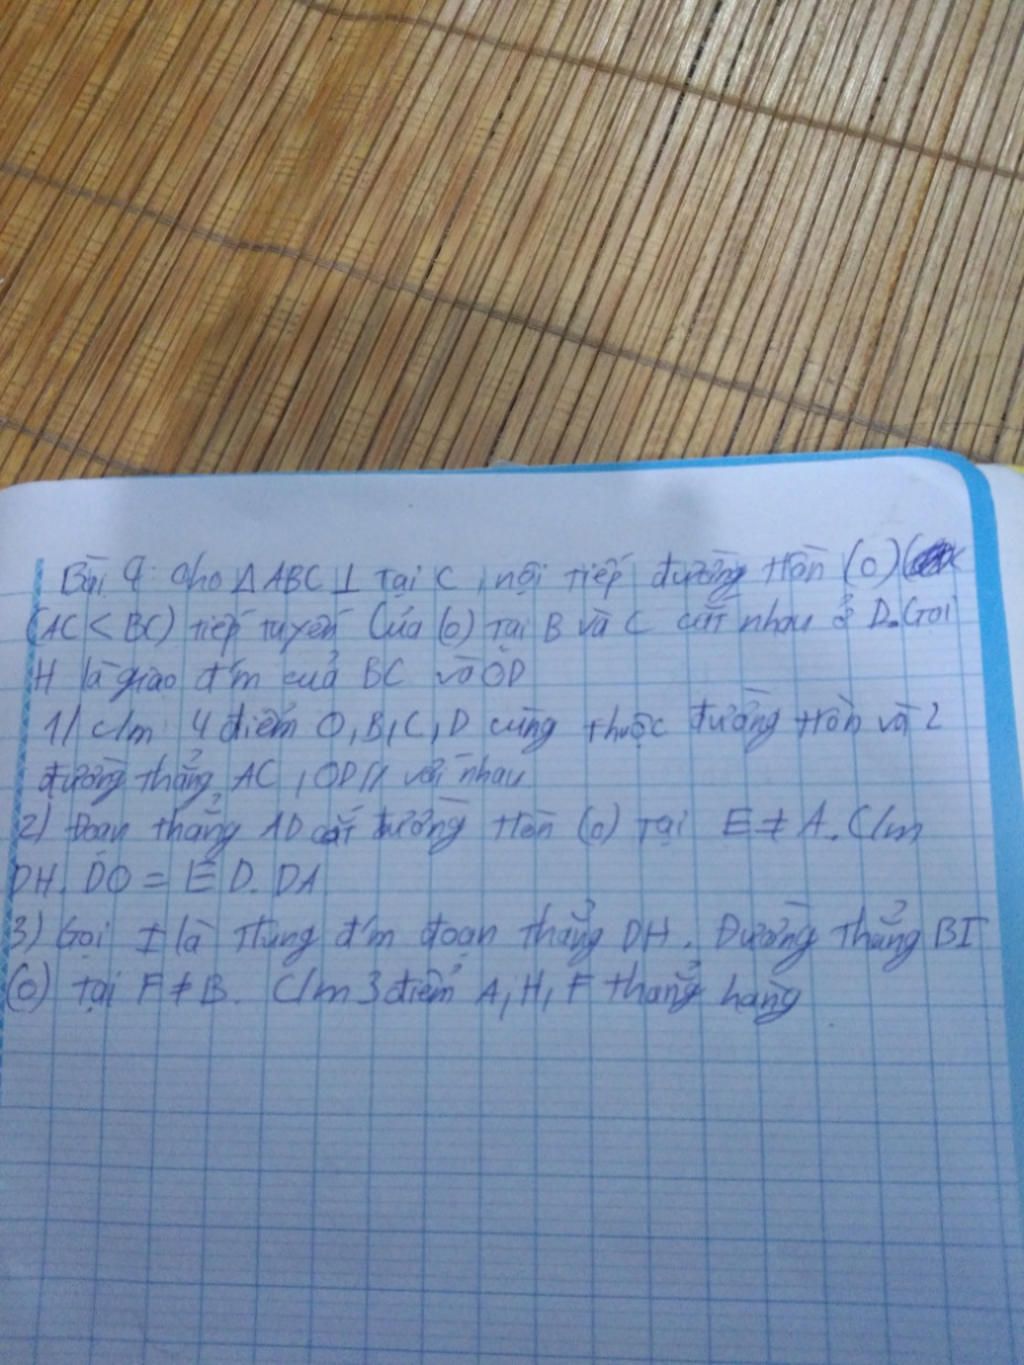 Bài 9: Cho △ABC ⊥ tại C, nội tiếp đường tròn (O) (
(AC < BC) tiếp tuyến của (O) tại B và C cắt nhau ở D. Gọi
H là giao đ'm của BC và OD
1/ c/m 4 điểm O, B, C, D cùng thuộc đường tròn và 2
đường thẳng AC, OD // với nhau
2) Đoạn thẳng AD cắt đường tròn (O) tại E ≠ A. C/m
DH. DO = ED. DA
3) Gọi I là trung đ'm đoạn thẳng DH. Đường thẳng BI
(O) tại F ≠ B. C/m 3 điểm A, H, F thẳng hàng